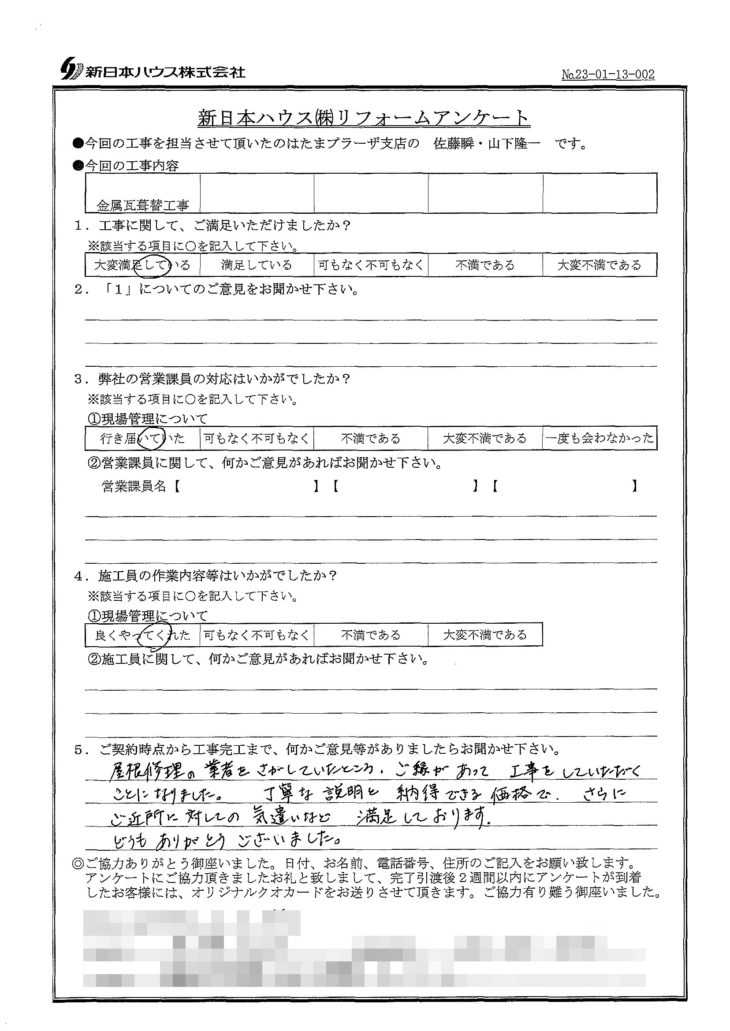 新日本ハウス株式会社
№23-01-13-002
新日本ハウス㈱リフォームアンケート
●今回の工事を担当させて頂いたのはたまプラーザ支店の 佐藤瞬・山下隆一 です。
●今回の工事内容
金属瓦葺替工事
1．工事に関して、ご満足いただけましたか？
※該当する項目に〇を記入して下さい。
大変満足している 満足している 可もなく不可もなく 不満である 大変不満である
2．「1」についてのご意見をお聞かせ下さい。
3．弊社の営業課員の対応はいかがでしたか？
※該当する項目に〇を記入して下さい。
①現場管理について
行き届いていた 可もなく不可もなく 不満である 大変不満である 一度も会わなかった
②営業課員に関して、何かご意見があればお聞かせ下さい。
営業課員名【 】【 】【 】
4．施工員の作業内容等はいかがでしたか？
※該当する項目に〇を記入して下さい。
①現場管理について
良くやってくれた 可もなく不可もなく 不満である 大変不満である
②施工員に関して、何かご意見があればお聞かせ下さい。
5．ご契約時点から工事完工まで、何かご意見等がありましたらお聞かせ下さい。
屋根修理の業者をさがしていたところ、ご縁があって工事をしていただく
ことになりました。 丁寧な説明と納得できる価格で、さらに
ご近所に対しての気遣いなど 満足しております。
どうもありがとうございました。
◎ご協力ありがとう御座いました。日付、お名前、電話番号、住所のご記入をお願い致します。
アンケートにご協力頂きましたお礼と致しまして、完了引渡後2週間以内にアンケートが到着
したお客様には、オリジナルクオカードをお送りさせて頂きます。ご協力有り難う御座いました。